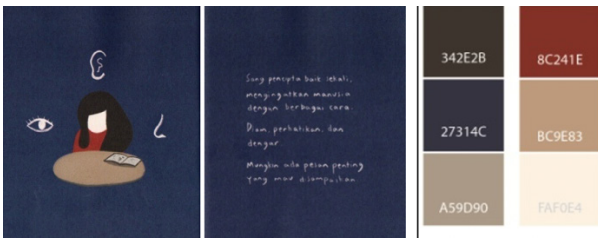 Sang pencipta baik sekali,
mengingatkan manusia
dengan berbagai cara.
Diam, perhatikan, dan
dengar.
Mungkin ada pesan penting
yang mau disampaikan.
342E2B
8C241E
27314C
BC9E83
A59D90
FAF0E4